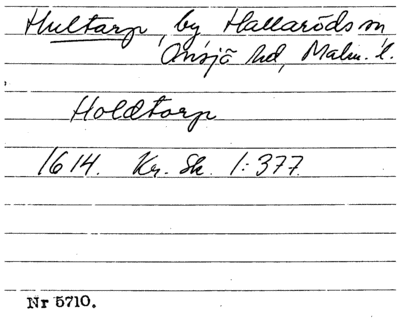 Hultarp, by Hallaröds sn
Onsjö hd, Malm. l.
Holdtorp
1614. Kr. Sk. 1:377
Nr 5710.